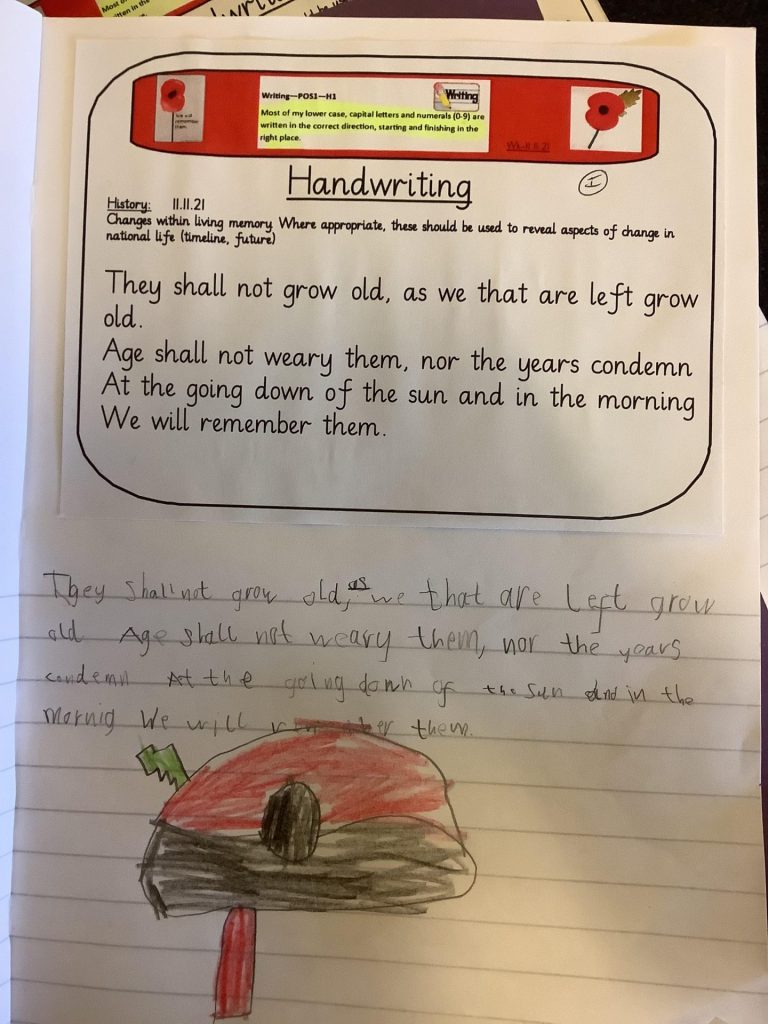 We will remember them.
Writing—POS1—H1
Writing
Most of my lower case, capital letters and numerals (0-9) are
written in the correct direction, starting and finishing in the
right place.
Wk-11.11.21
Handwriting
I
History: 11.11.21
Changes within living memory. Where appropriate, these should be used to reveal aspects of change in
national life (timeline, future)
They shall not grow old, as we that are left grow
old.
Age shall not weary them, nor the years condemn
At the going down of the sun and in the morning
We will remember them.
They shall not grow old, as we that are left grow
old Age shall not weary them, nor the years
condemn At the going down of the sun and in the
mornig We will them.